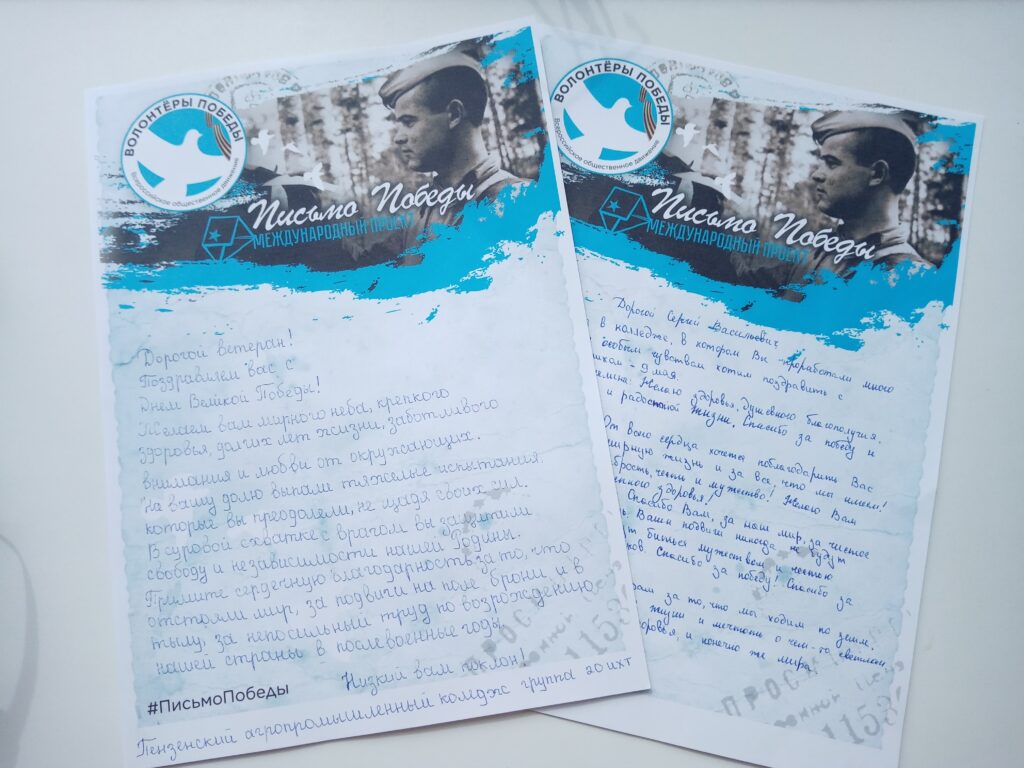 ВОЛОНТЁРЫ ПОБЕДЫ
Всероссийское общественное движение
Письмо Победы
МЕЖДУНАРОДНЫЙ ПРОЕКТ
Дорогой ветеран!
Поздравляем вас с
Днем Великой Победы!
Желаем вам мирного неба, крепкого
здоровья, долгих лет жизни, заботливого
внимания и любви от окружающих.
На вашу долю выпали тяжелые испытания,
которые вы преодолели, не щадя своих сил.
В суровой схватке с врагом вы защитили
свободу и независимости нашей Родины.
Примите сердечную благодарность за то, что
отстояли мир, за подвиги на поле брони и в
тылу, за непосильный труд по возрождению
нашей страны в послевоенные годы.
Низкий вам поклон!
#ПисьмоПобеды
Пензенский агропромышленный колледж группа 20 ихт
ВОЛОНТЁРЫ ПОБЕДЫ
Всероссийское общественное движение
Письмо Победы
МЕЖДУНАРОДНЫЙ ПРОЕКТ
Дорогой Сергей Васильевич
в колледже, в котором Вы проработали много
особым чувством хотим поздравить с
9 мая.
Желаю здоровья, душевного благополучия.
и радостной жизни. Спасибо за победу и
всего сердца хочется поблагодарить Вас
мирную жизнь и за все, что мы имеем!
честь и мужество! Желаю Вам
здоровья!
Спасибо Вам, за наш мир, за чистое
Ваши подвиги никогда не будут
биться мужественно, с честью
Спасибо за победу! Спасибо за
за то, что мы ходим по земле.
жизни и мечтать о чем-то светлом
и конечно же мира
ПРОС
1153